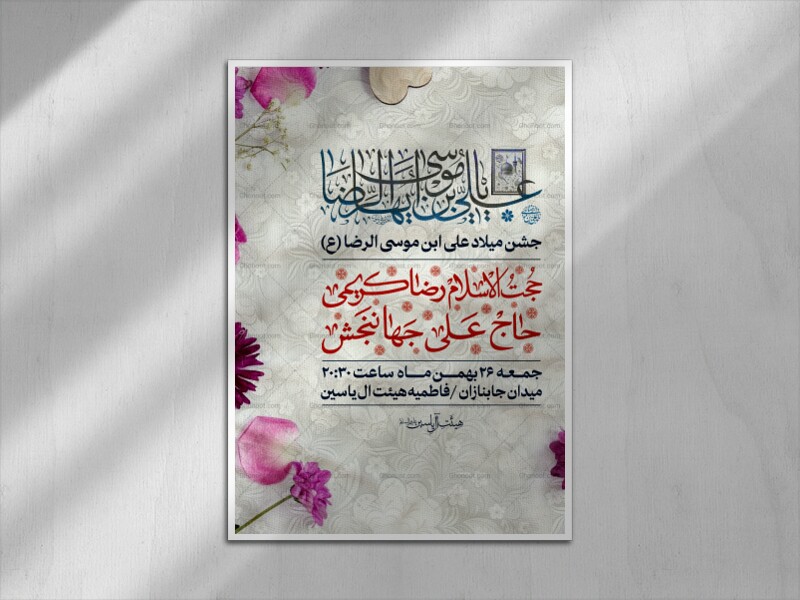 یا علی بن موسی ایها الرضا
جشن میلاد علی ابن موسی الرضا (ع)
حجت الاسلام رضا کریمی
حاج علی جهانبخش
جمعه ۲۶ بهمن ماه ساعت ۲۰:۳۰
میدان جانبازان / فاطمیه هیئت ال یاسین
هیئت آل یاسین